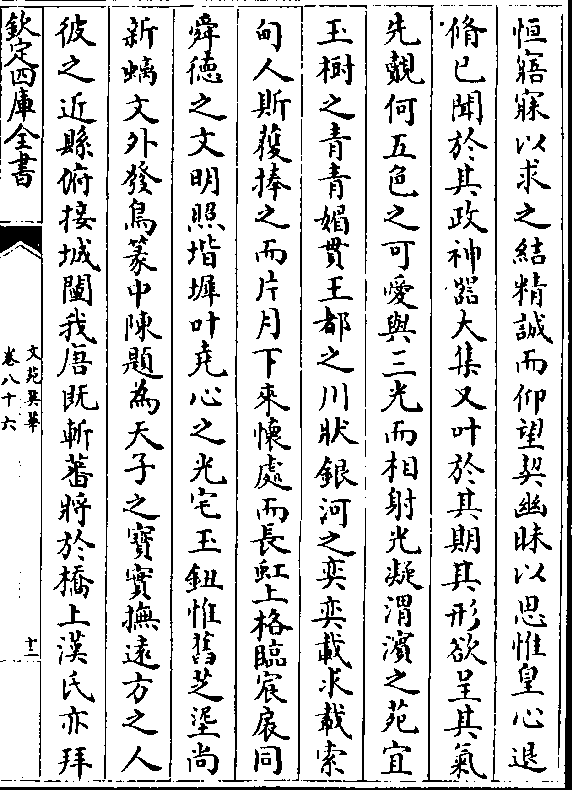 恒寤寐以求之結精誠而仰望契幽昧以思惟皇心退
脩已聞於其政神噐大集又叶於其期其形欲呈其氣
先覿何五色之可愛與三光而相射光凝渭濱之苑宜
玉樹之青青媚貫王都之川狀銀河之奕奕載求載索
甸人斯獲捧之而片月下來懷處而長虹上格臨宸扆同
舜徳之文明照堦墀叶堯心之光宅玉鈕惟舊芝埿尚
新螭文外發鳥篆中陳題為天子之寶實撫遠方之人
彼之近縣俯接城闉我唐既斬蕃將於橋上漢氏亦拜
欽定四庫全書
文苑英華
卷八十六
十一